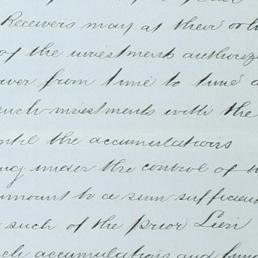 Receivers may at their
of the investment authoriz
ver from time to time a
such investments with the
ntil the accumulations
ng under the control of
mount to a sum sufficien
such of the prior Lien
ch accumulations and